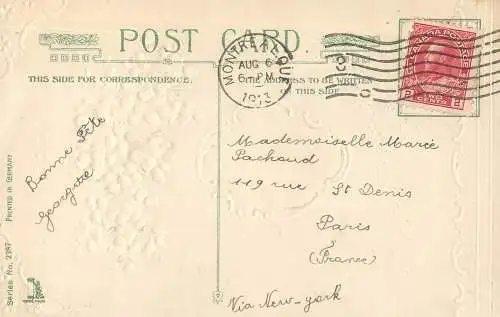 POST CARD
THIS SIDE FOR CORRESPONDENCE.
THE ADDRESS TO BE WRITTEN
ON THIS SIDE.
MONTREAL, QUE.
AUG 6
6 PM
1913
CANADA POSTAGE
2 2
TWO
CENTS
Bonne Fête
Georgette
Mademoiselle Marie
Pachoud
119 rue St Denis
Paris
(France)
Via New-york
Series No. 2397 PRINTED IN GERMANY